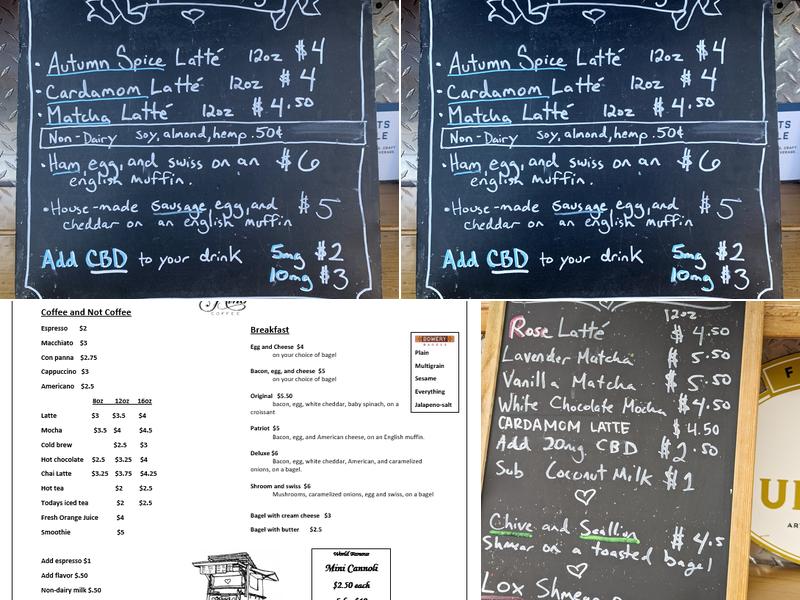 • Autumn Spice Latté 12oz $4
• Cardamom Latté 12oz $4
• Matcha Latté 12oz $4.50
Non-Dairy soy, almond, hemp .50¢
• Ham, egg, and swiss on an $6
english muffin.
• House-made sausage, egg, and $5
cheddar on an english muffin
Add CBD to your drink 5mg $2
10mg $3
• Autumn Spice Latté 12oz $4
• Cardamom Latté 12oz $4
• Matcha Latté 12oz $4.50
Non-Dairy soy, almond, hemp .50¢
• Ham, egg, and swiss on an $6
english muffin.
• House-made sausage, egg, and $5
cheddar on an english muffin
Add CBD to your drink 5mg $2
10mg $3
COFFEE
Coffee and Not Coffee
Espresso $2
Macchiato $3
Con panna $2.75
Cappuccino $3
Americano $2.5
8oz 12oz 16oz
Latte $3 $3.5 $4
Mocha $3.5 $4 $4.5
Cold brew $2.5 $3
Hot chocolate $2.5 $3 $3.5
Chai Latte $3.25 $3.75 $4.25
Hot tea $2 $2.5
Todays iced tea $2 $2.5
Fresh Orange Juice $4
Smoothie $5
Add espresso $1
Add flavor $.50
Non-dairy milk $.50
Breakfast
Egg and Cheese $4
on your choice of bagel
Bacon, egg, and cheese $5
on your choice of bagel
Original $5.50
bacon, egg, white cheddar, baby spinach, on a
croissant
Patriot $5
Bacon, egg, and American cheese, on an English muffin.
Deluxe $6
Bacon, egg, white cheddar, American, and caramelized
onions, on a bagel.
Shroom and swiss $6
Mushrooms, caramelized onions, egg and swiss, on a bagel
Bagel with cream cheese $3
Bagel with butter $2.5
BOWERY
BAGELS
Plain
Multigrain
Sesame
Everything
Jalapeno-salt
World Famous
Mini Cannoli
$2.50 each
12oz
Rose Latté $4.50
Lavender Matcha $5.50
Vanilla Matcha $5.50
White Chocolate Mocha $4.50
CARDAMOM LATTE $4.50
Add 20mg CBD $2.50
Sub Coconut Milk $1
Chive and Scallion $4.5
Shmear on a toasted bagel
Lox Shmear